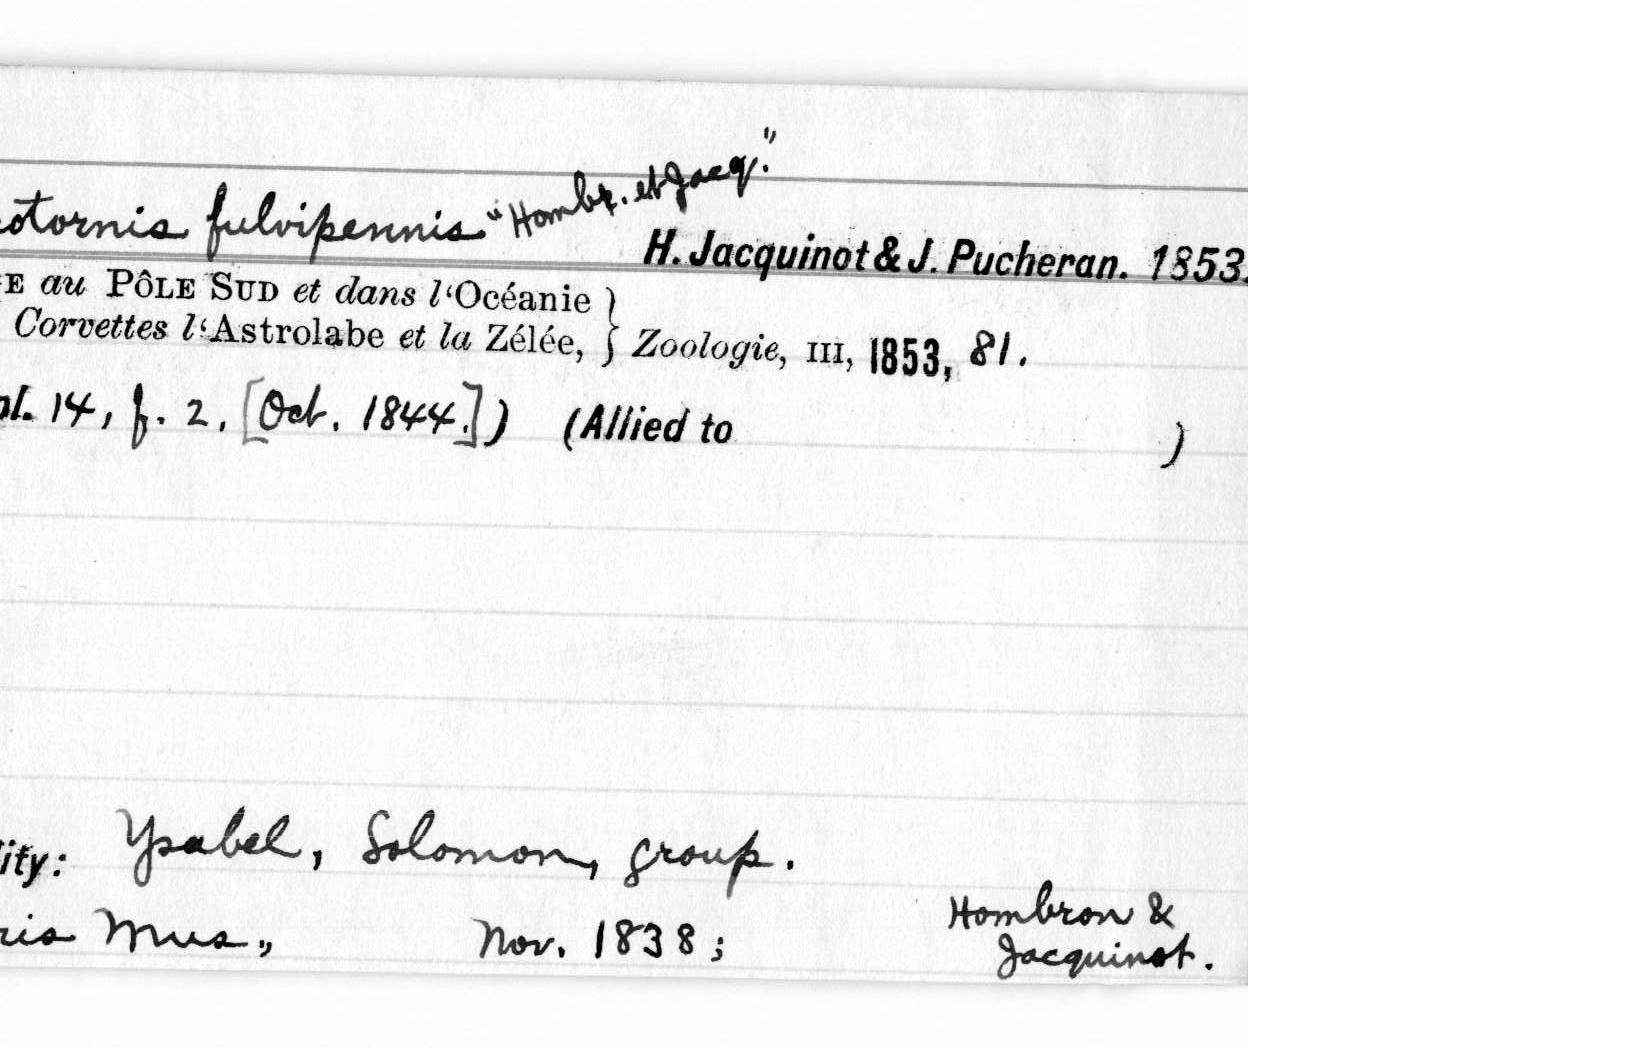 otornis fulvipennis "Hombr. et Jacq."
H. Jacquinot & J. Pucheran. 1853.
E au PÔLE SUD et dans l'Océanie }
Corvettes l'Astrolabe et la Zélée, } Zoologie, III, 1853, 81.
pl. 14, f. 2, [Oct. 1844.]) (Allied to )
lity: Ysabel, Solomon, group.
ris Mus., Nov. 1838; Hombron &
Jacquinot.